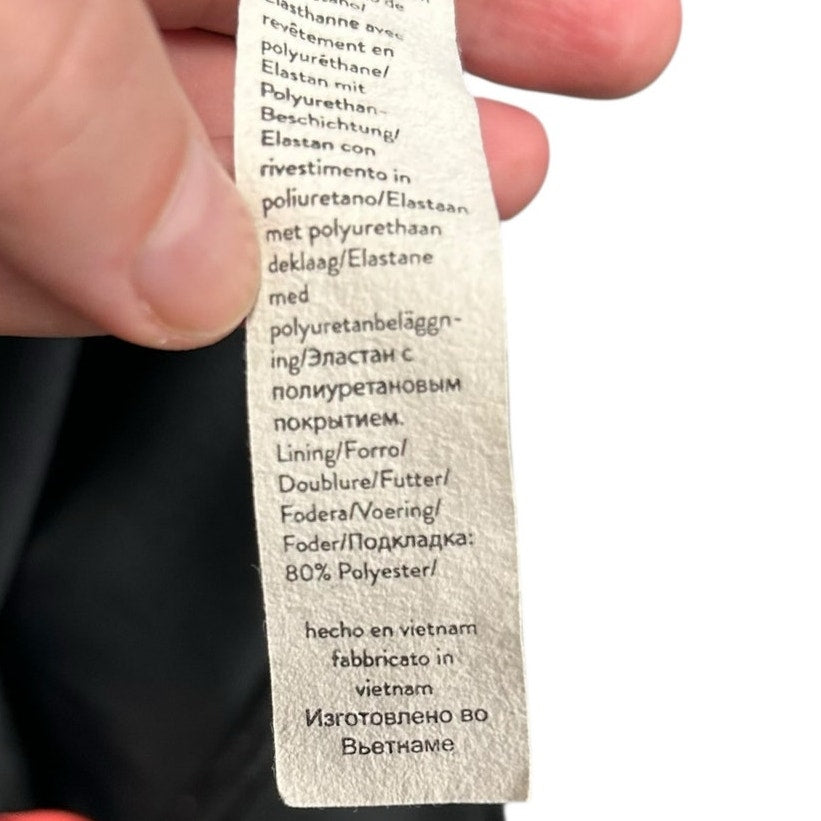 de
Elasthanne avec
revêtement en
polyuréthane/
Elastan mit
Polyurethan-
Beschichtung/
Elastan con
rivestimento in
poliuretano/Elastaan
met polyurethaan
deklaag/Elastane
med
polyuretanbeläggn-
ing/Эластан с
полиуретановым
покрытием.
Lining/Forro/
Doublure/Futter/
Fodera/Voering/
Foder/Подкладка:
80% Polyester/
hecho en vietnam
fabbricato in
vietnam
Изготовлено во
Вьетнаме